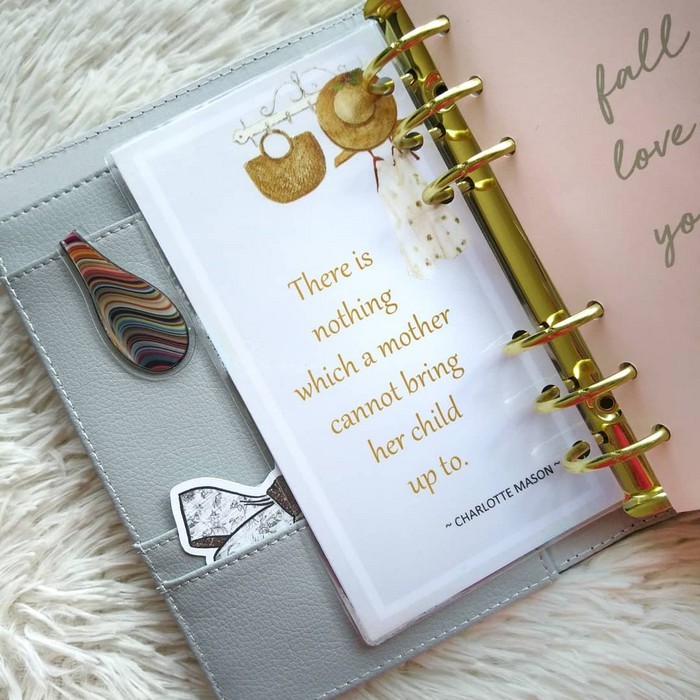 There is
nothing
which a mother
cannot bring
her child
up to.
~ CHARLOTTE MASON ~
fall
love